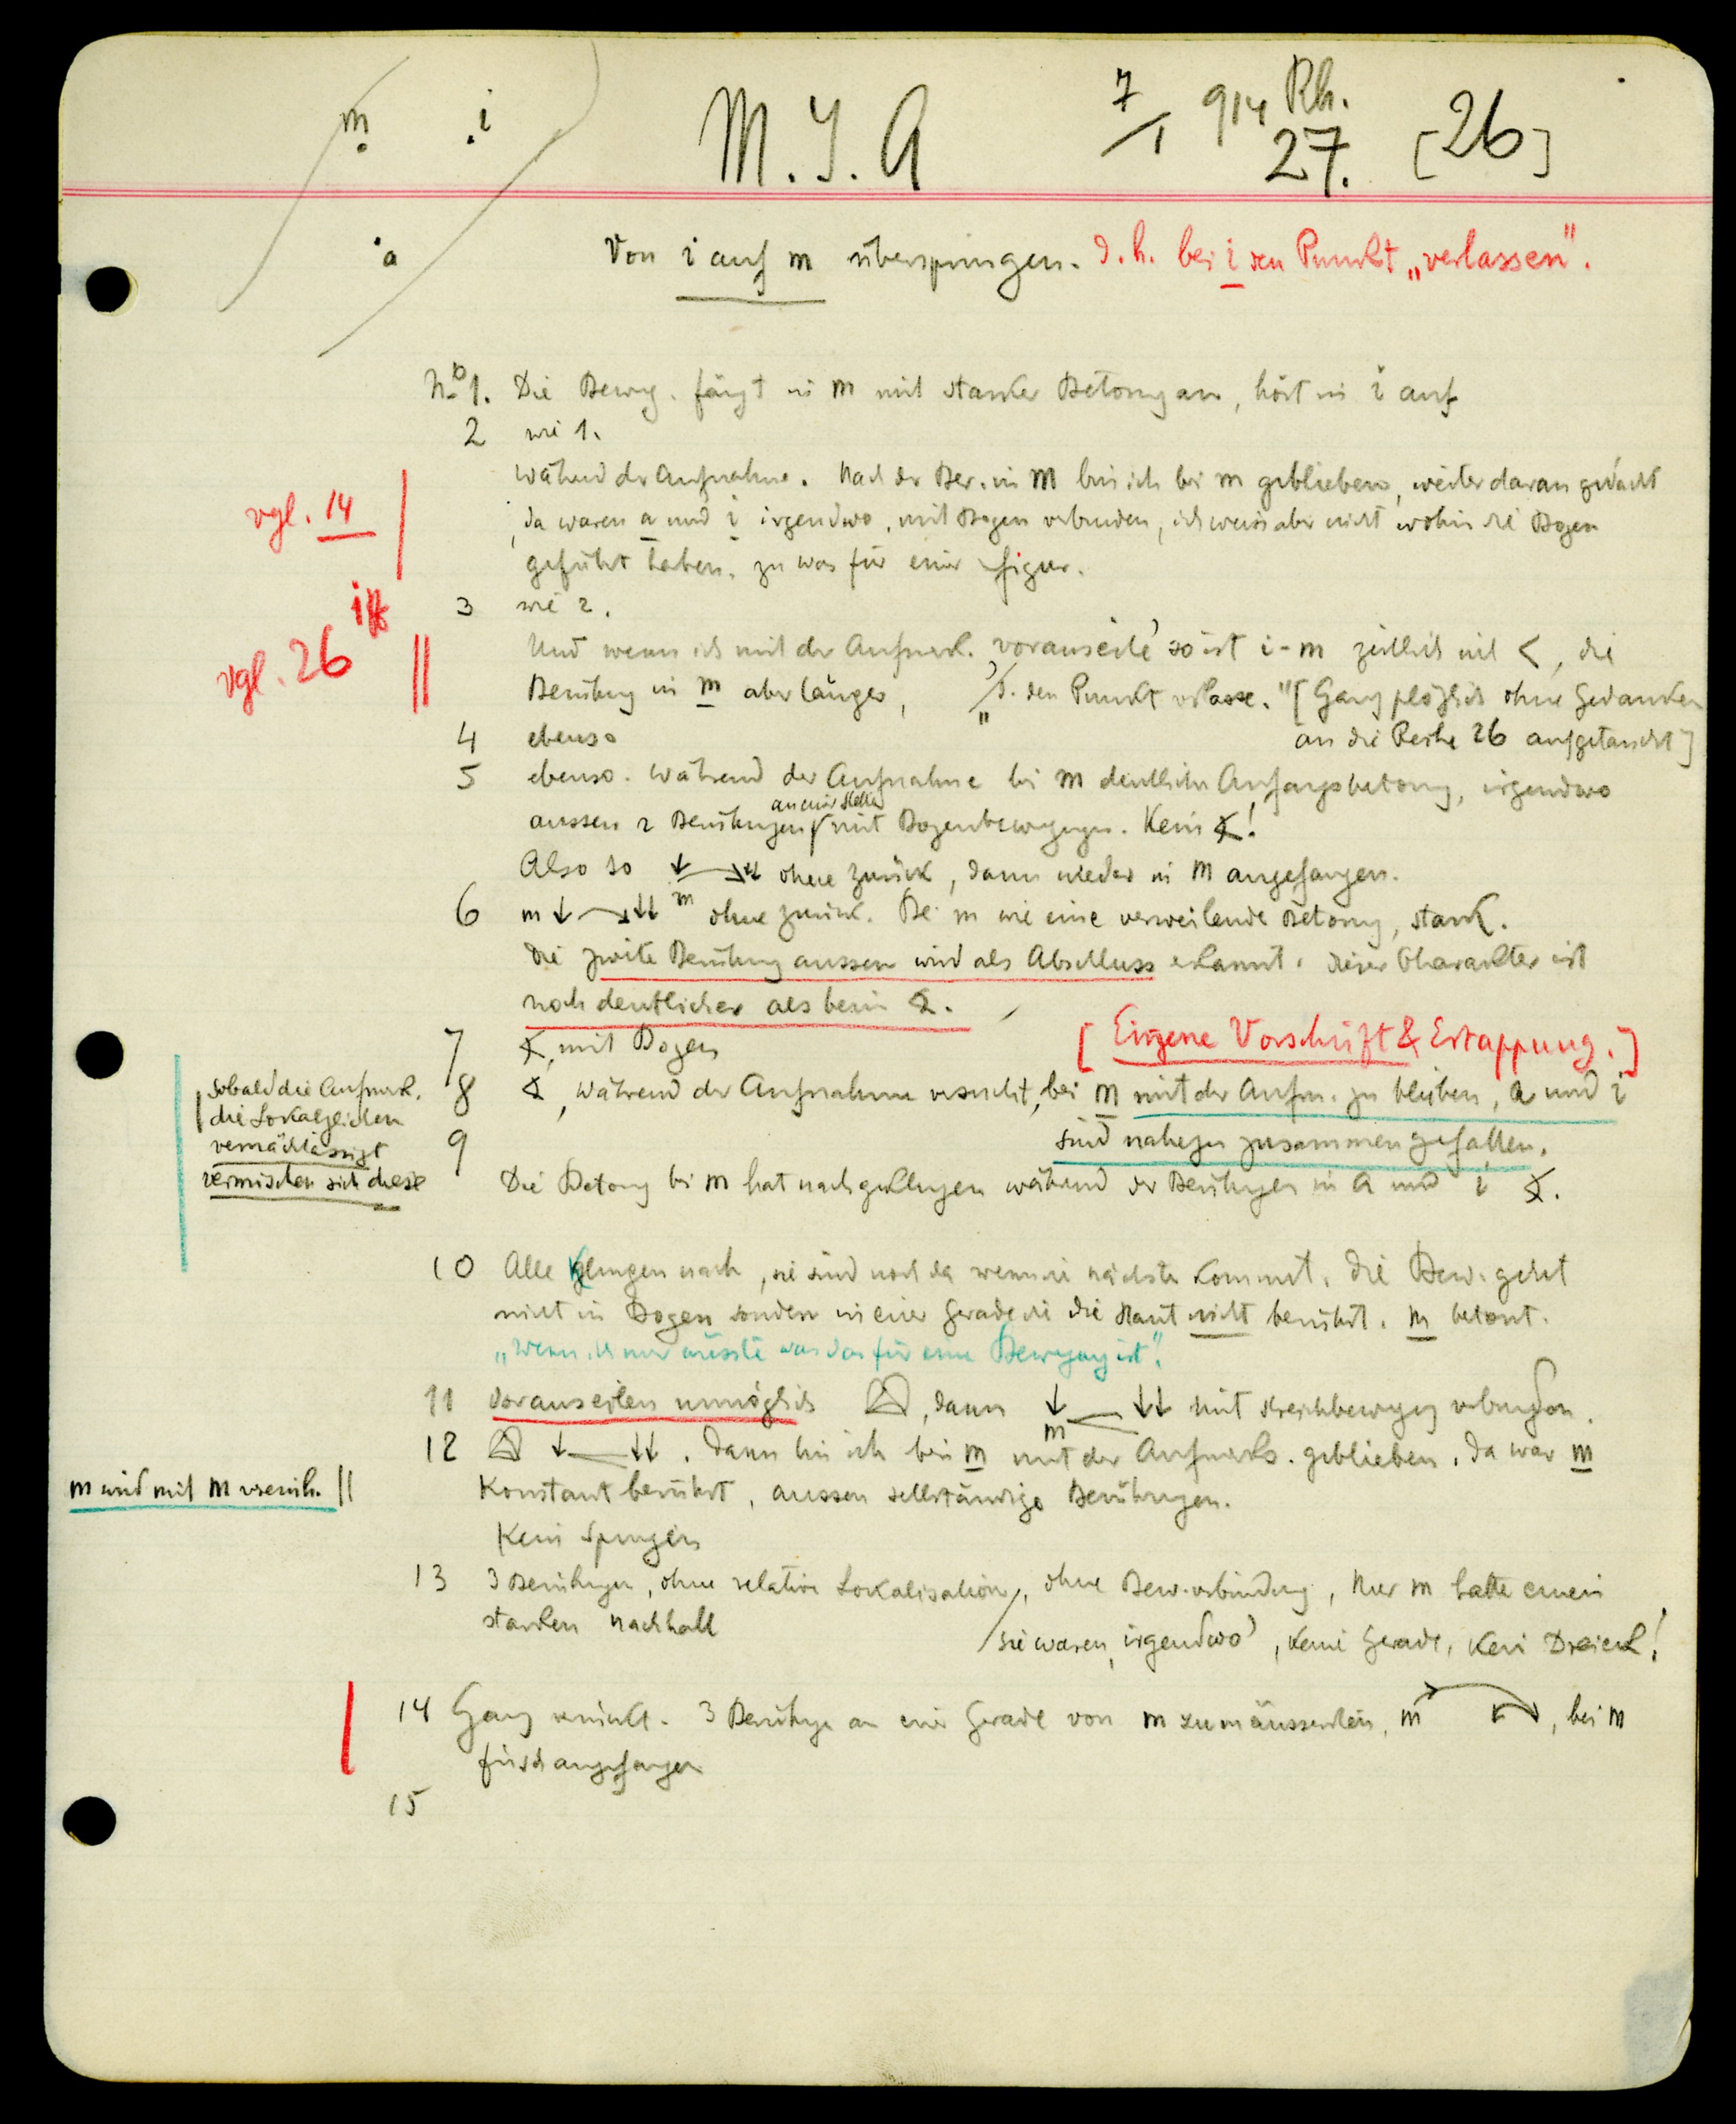 m i M. I. A 7/1 914 Rh. 27. [26]
a Von i auf m überspringen. D. h. bei i den Punkt „verlassen".
No 1. Die Beweg. fängt in m mit starker Betonung an, hört in i auf
2 wie 1.
während der Aufnahme. Nach der Ber. in m bin ich bei m geblieben, weiter daran gedacht
vgl. 14 da waren a und i irgendwo, mit Bogen verbunden, ich weiss aber nicht wohin die Bogen
geführt haben, zu was für einer Figur.
3 wie 2.
vgl. 26 Und wenn ich mit der Aufmerk. vorauseile so ist i-m zeitlich <, die
Berührung in m aber länger, „d. den Punkt verlasse." [Ganz plözlich ohne Gedanken
4 ebenso an die Reihe 26 aufgetaucht]
5 ebenso. Während der Aufnahme bei m deutliche Anfangsbetonung, irgendwo
an einer Stelle
aussen 2 Berührungen mit Bogenbewegungen. Kein !
Also so ↓ → ↓↓ ohne zurück, dann wieder in m angefangen.
m
6 m ↓ → ↓↓ ohne zurück. Bei m wie eine verweilende Betonung, stark.
Die zweite Berührung aussen wird als Abschluss erkannt. dieser Charakter ist
noch deutlicher als beim
[Eigene Vorschrift & Ertappung.]
7 mit Bogen
8 , während der Aufnahme versucht, bei m mit der Aufm. zu bleiben, a und i
sobald die Aufmerk.
die Lokalzeichen
vernachlässigt
vermischen sich diese
9 sind nahezu zusammengefallen.
Die Betonung bei m hat nachgeklungen während der Berührungen in a und i
10 Alle klingen nach, sie sind noch da wenn die nächste kommt. Die Bew. geht
nicht in Bogen sondern in einer Gerade die die Haut nicht berührt. m betont.
„Wenn ich nur wüsste was das für eine Bewegung ist".
11 Vorauseilen unmöglich , dann ↓ ← ↓↓ mit Streichbewegung verbunden.
m
12 ↓ ← ↓↓. Dann bin ich bei m mit der Aufmerks. geblieben. Da war m
m wird mit m vereinh. || Konstant berührt, aussen selbständige Berührungen.
Kein Springen
13 3 Berührungen, ohne relative Lokalisation, ohne Bew. verbindung, Nur m hatte einen
starken Nachhall sie waren „irgendwo", keine Gerade, Kein Dreieck!
14 Ganz 3 Berührungen an einer Gerade von m zum äussersten, m , bei m
frisch angefangen
15